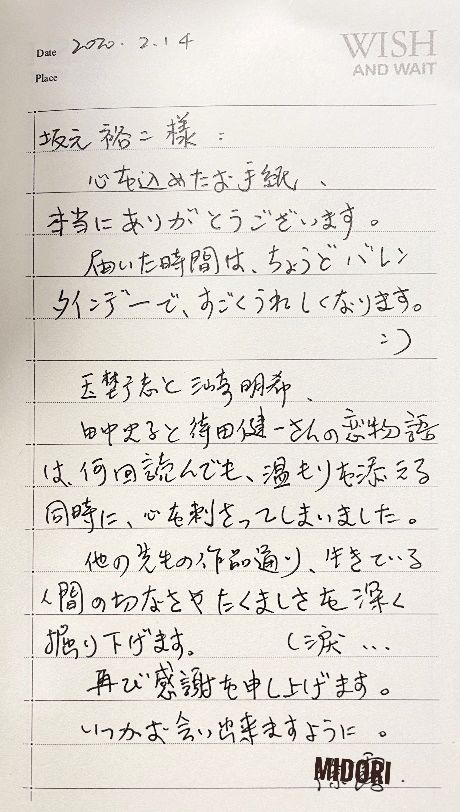 Date 2020.2.14
WISH
AND WAIT
Place
坂元裕二様：
心を込めたお手紙、
本当にありがとうございます。
届いた時間は、ちょうどバレン
タインデーで、すごくうれしくなります。
:)
玉埜志と三崎明希、
田中史子と待田健一さんの恋物語
は、何回読んでも、温もりを添える
同時に、心を刺さってしまいました。
他の先生の作品通り、生きている
人間の切なさやたくましさを深く
掘り下げます。 (涙...
再び感謝を申し上げます。
いつかお会い出来ますように。
MIDORI